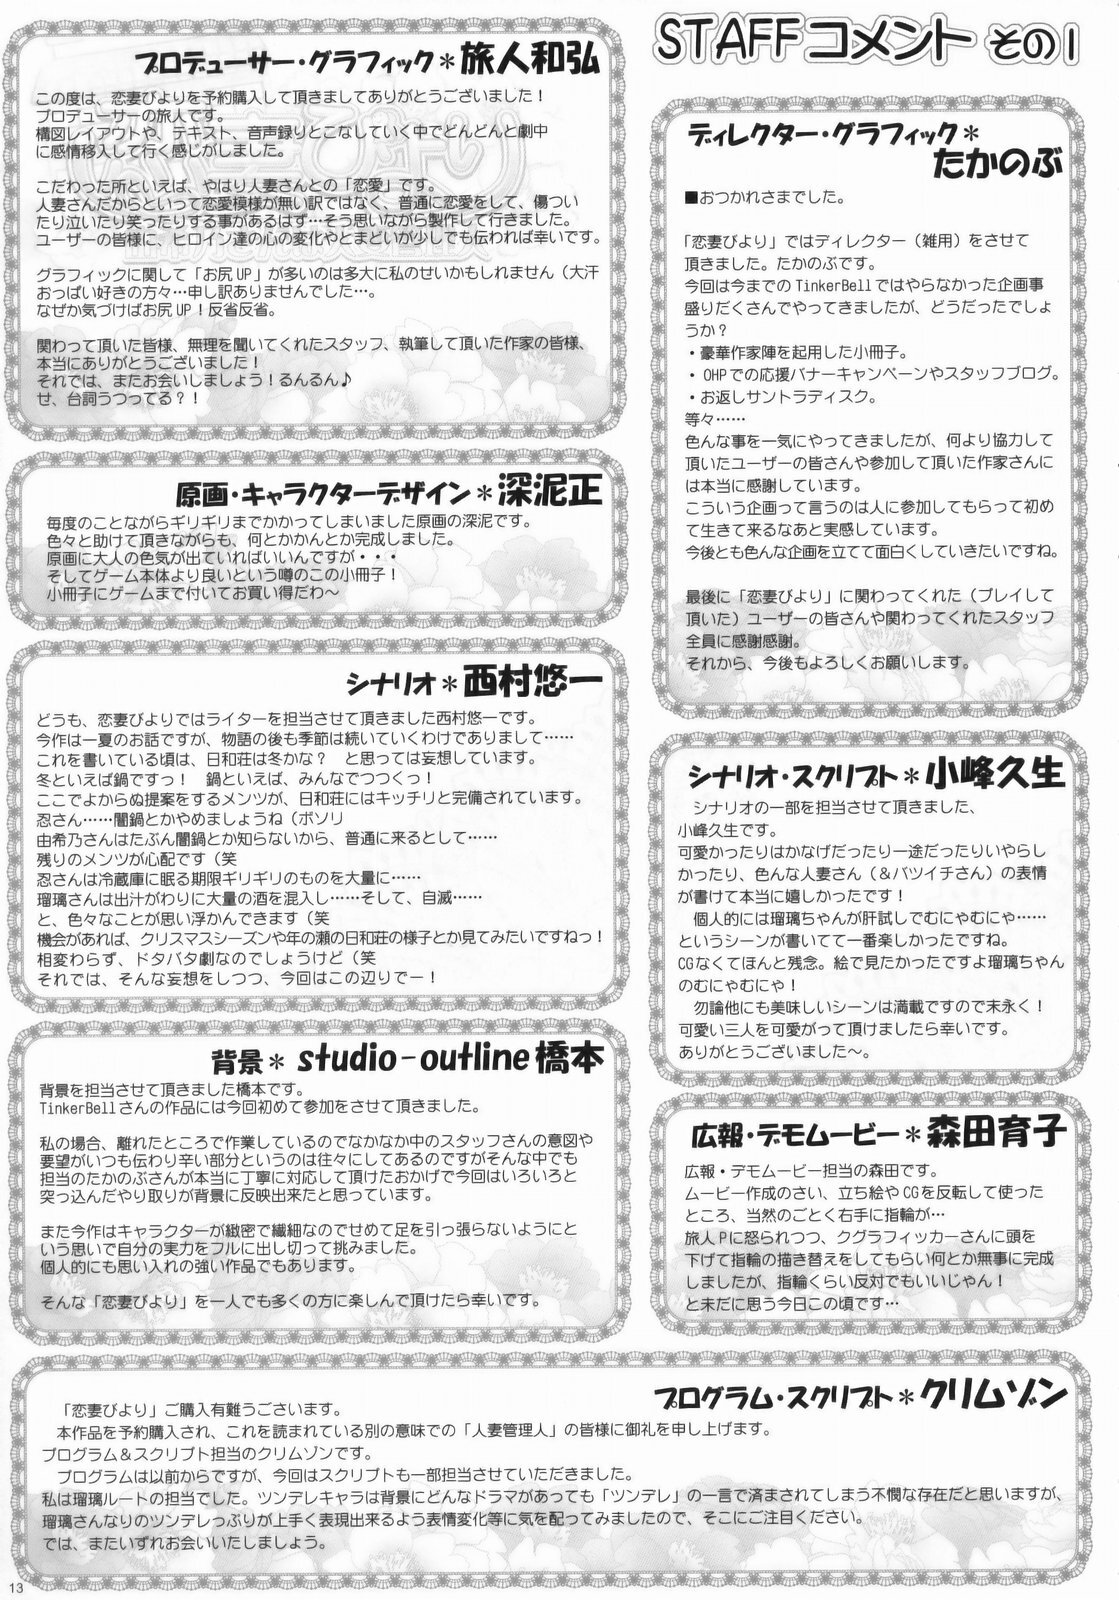 STAFFコメント その1
プロデューサー・グラフィック＊旅人和弘
この度は、恋妻びよりを予約購入して頂きましてありがとうございました！
プロデューサーの旅人です。
構図レイアウトや、テキスト、音声録りとこなしていく中でどんどんと劇中
に感情移入して行く感じがしました。
こだわった所といえば、やはり人妻さんとの「恋愛」です。
人妻さんだからといって恋愛模様が無い訳ではなく、普通に恋愛をして、傷つい
たり泣いたり笑ったりする事があるはず…そう思いながら製作して行きました。
ユーザーの皆様に、ヒロイン達の心の変化やとまどいが少しでも伝われば幸いです。
グラフィックに関して「お尻UP」が多いのは多大に私のせいかもしれません（大汗
おっぱい好きの方々…申し訳ありませんでした…。
なぜか気づけばお尻UP！反省反省。
関わって頂いた皆様、無理を聞いてくれたスタッフ、執筆して頂いた作家の皆様、
本当にありがとうございました！
それでは、またお会いしましょう！るんるん♪
せ、台詞うつってる？！
原画・キャラクターデザイン＊深泥正
毎度のことながらギリギリまでかかってしまいました原画の深泥です。
色々と助けて頂きながらも、何とかかんとか完成しました。
原画に大人の色気が出ていればいいんですが・・・
そしてゲーム本体より良いという噂のこの小冊子！
小冊子にゲームまで付いてお買い得だわ～
シナリオ＊西村悠一
どうも、恋妻びよりではライターを担当させて頂きました西村悠一です。
今作は一夏のお話ですが、物語の後も季節は続いていくわけでありまして……
これを書いている頃は、日和荘は冬かな？　と思っては妄想しています。
冬といえば鍋ですっ！　鍋といえば、みんなでつつくっ！
ここでよからぬ提案をするメンツが、日和荘にはキッチリと完備されています。
忍さん……闇鍋とかやめましょうね（ボソリ
由希乃さんはたぶん闇鍋とか知らないから、普通に来るとして……
残りのメンツが心配です（笑
忍さんは冷蔵庫に眠る期限ギリギリのものを大量に……
瑠璃さんは出汁がわりに大量の酒を混入し……そして、自滅……
と、色々なことが思い浮かんできます（笑
機会があれば、クリスマスシーズンや年の瀬の日和荘の様子とか見てみたいですねっ！
相変わらず、ドタバタ劇なのでしょうけど（笑
それでは、そんな妄想をしつつ、今回はこの辺りでー！
背景＊ studio-outline橋本
背景を担当させて頂きました橋本です。
TinkerBellさんの作品には今回初めて参加をさせて頂きました。
私の場合、離れたところで作業しているのでなかなか中のスタッフさんの意図や
要望がいつも伝わり辛い部分というのは往々にしてあるのですがそんな中でも
担当のたかのぶさんが本当に丁寧に対応して頂けたおかげで今回はいろいろと
突っ込んだやり取りが背景に反映出来たと思っています。
また今作はキャラクターが緻密で繊細なのでせめて足を引っ張らないようにと
いう思いで自分の実力をフルに出し切って挑みました。
個人的にも思い入れの強い作品でもあります。
そんな「恋妻びより」を一人でも多くの方に楽しんで頂けたら幸いです。
ディレクター・グラフィック＊
たかのぶ
■おつかれさまでした。
「恋妻びより」ではディレクター（雑用）をさせて
頂きました。たかのぶです。
今回は今までのTinkerBellではやらなかった企画事
盛りだくさんでやってきましたが、どうだったでしょ
うか？
・豪華作家陣を起用した小冊子。
・OHPでの応援バナーキャンペーンやスタッフブログ。
・お返しサントラディスク。
等々……
色んな事を一気にやってきましたが、何より協力して
頂いたユーザーの皆さんや参加して頂いた作家さんに
は本当に感謝しています。
こういう企画って言うのは人に参加してもらって初め
て生きて来るなあと実感しています。
今後とも色んな企画を立てて面白くしていきたいですね。
最後に「恋妻びより」に関わってくれた（プレイして
頂いた）ユーザーの皆さんや関わってくれたスタッフ
全員に感謝感謝。
それから、今後もよろしくお願いします。
シナリオ・スクリプト＊小峰久生
シナリオの一部を担当させて頂きました、
小峰久生です。
可愛かったりはかなげだったり一途だったりいやらし
かったり、色んな人妻さん（＆バツイチさん）の表情
が書けて本当に嬉しかったです！
個人的には瑠璃ちゃんが肝試しでむにゃむにゃ……
というシーンが書いてて一番楽しかったですね。
CGなくてほんと残念。絵で見たかったですよ瑠璃ちゃん
のむにゃむにゃ！
勿論他にも美味しいシーンは満載ですので末永く！
可愛い三人を可愛がって頂けましたら幸いです。
ありがとうございました～。
広報・デモムービー＊森田育子
広報・デモムービー担当の森田です。
ムービー作成のさい、立ち絵やCGを反転して使った
ところ、当然のごとく右手に指輪が…
旅人Pに怒られつつ、クグラフィッカーさんに頭を
下げて指輪の描き替えをしてもらい何とか無事に完成
しましたが、指輪くらい反対でもいいじゃん！
と未だに思う今日この頃です…
プログラム・スクリプト＊クリムゾン
「恋妻びより」ご購入有難うございます。
本作品を予約購入され、これを読まれている別の意味での「人妻管理人」の皆様に御礼を申し上げます。
プログラム＆スクリプト担当のクリムゾンです。
プログラムは以前からですが、今回はスクリプトも一部担当させていただきました。
私は瑠璃ルートの担当でした。ツンデレキャラは背景にどんなドラマがあっても「ツンデレ」の一言で済まされてしまう不憫な存在だと思いますが、
瑠璃さんなりのツンデレっぷりが上手く表現出来るよう表情変化等に気を配ってみましたので、そこにご注目ください。
では、またいずれお会いいたしましょう。
13